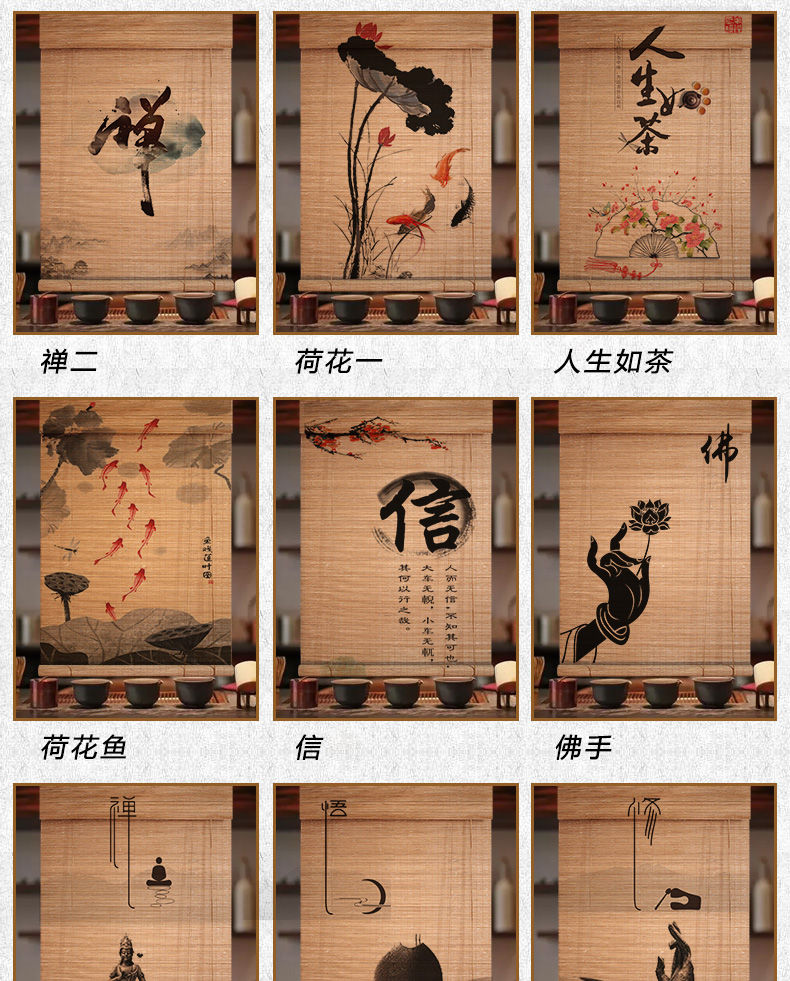 禅
人
生
如
茶
禅二
荷花一
人生如茶
信
人而无信，不知其可也，
大车无輗，小车无軏，
其何以行之哉。
佛
荷花鱼
信
佛手
禅
悟
修